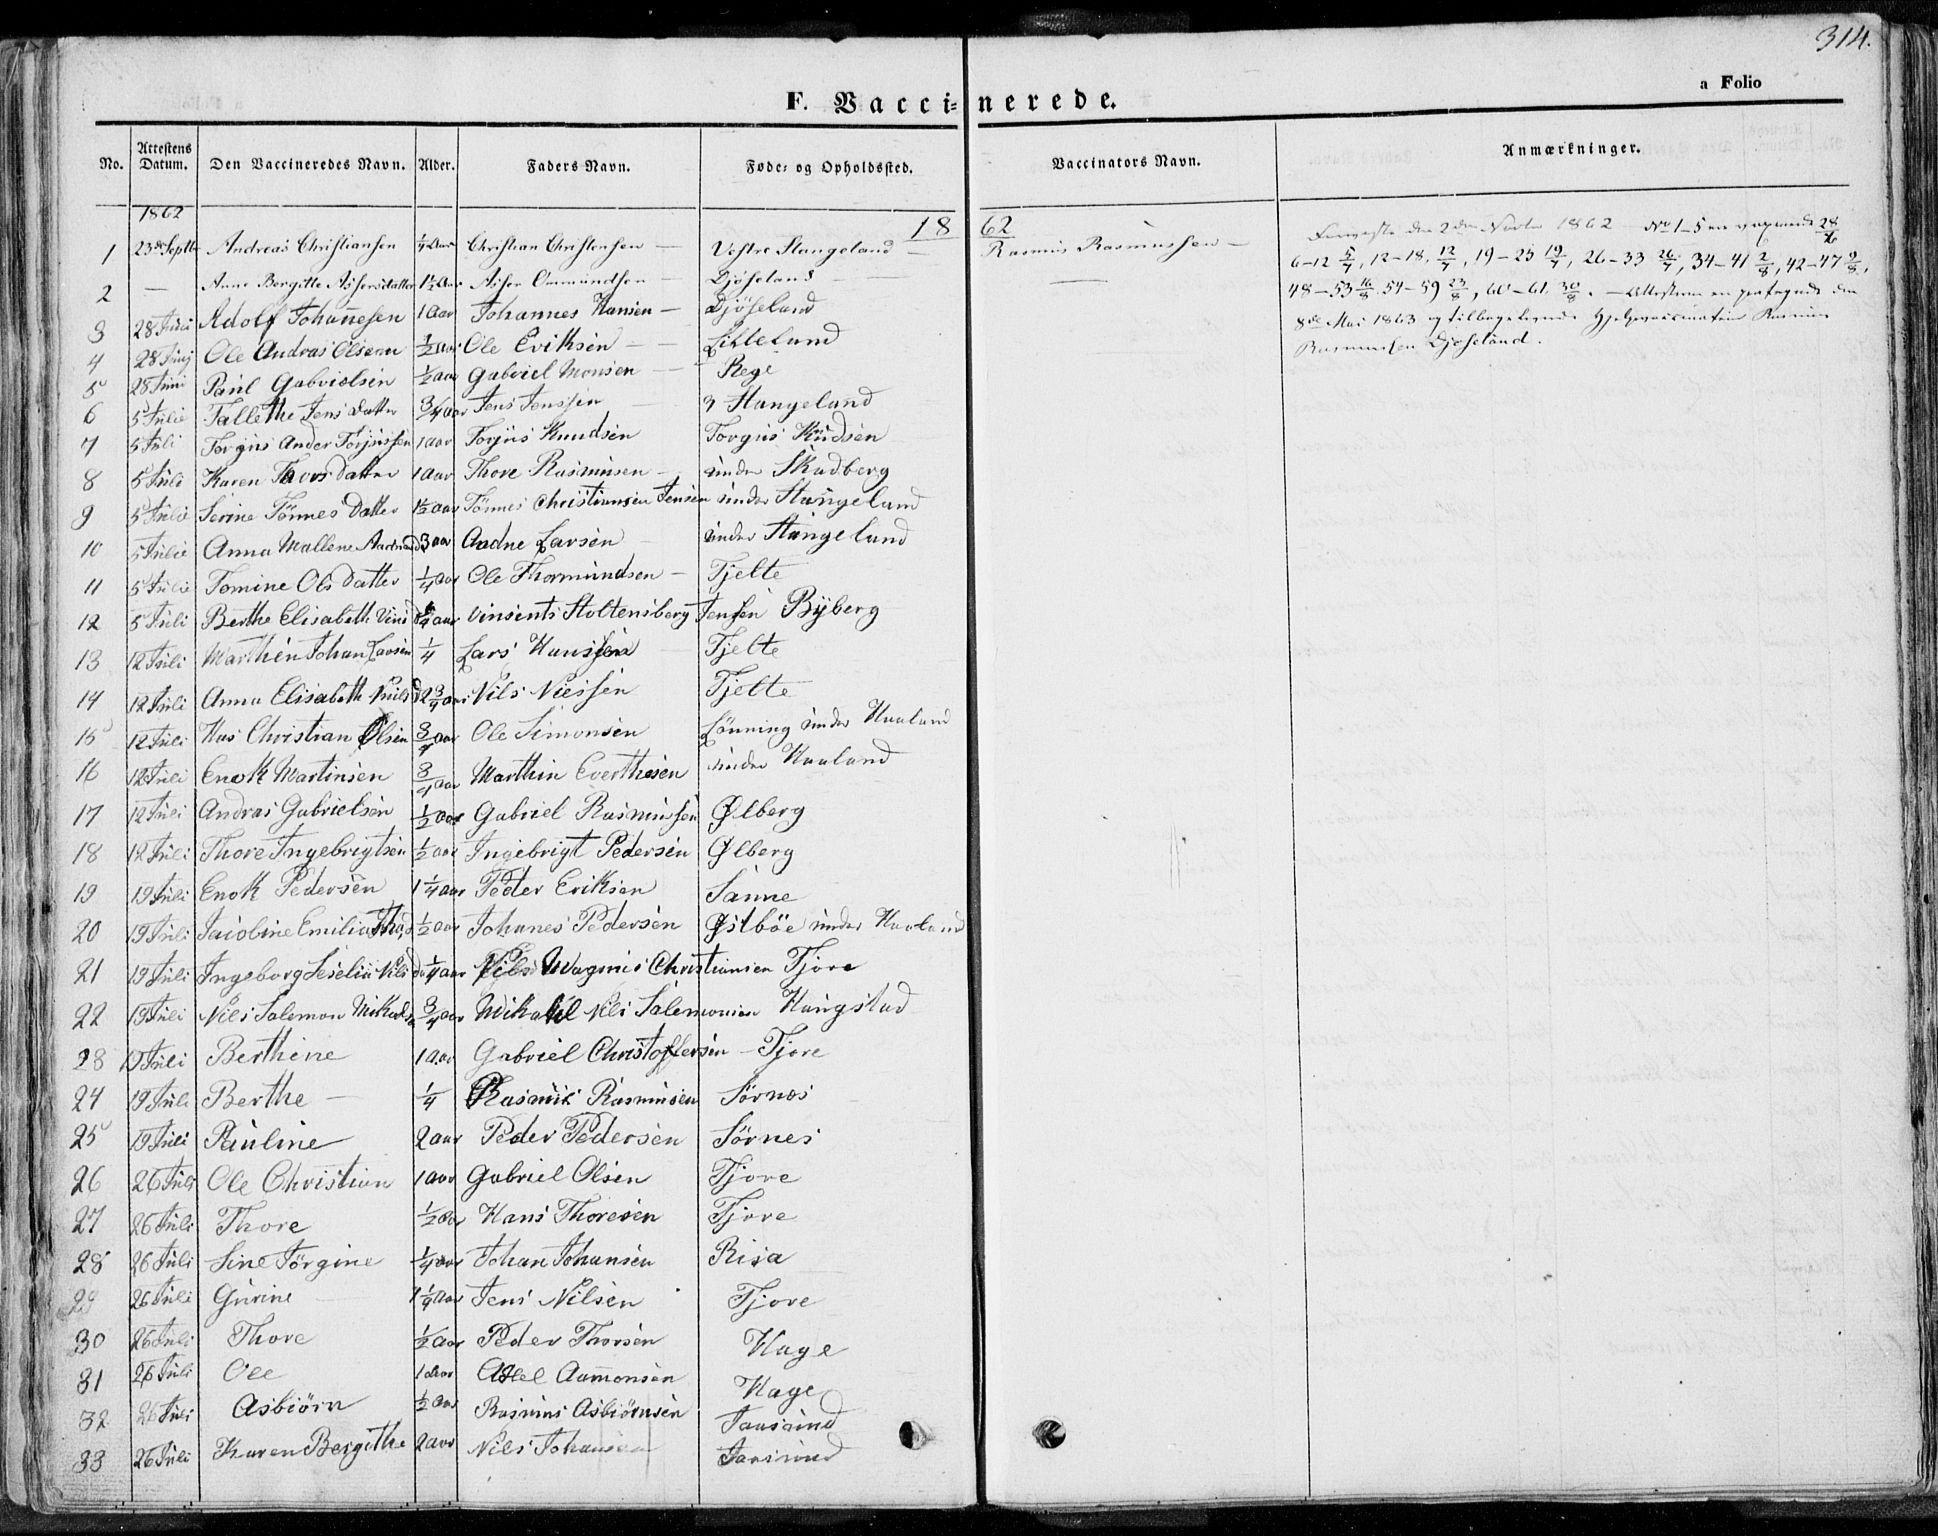 314.
a Folio
F. Vaccinerede.
No. Attestens Datum. Den Vaccineredes Navn. Alder. Faders Navn. Føde- og Opholdssted. Vaccinators Navn. Anmærkninger.
1862 1862
1 23de Septbr Andreas Christiansen 1/4 Aar Christian Christensen — Vestre Stangeland — Rasmus Rasmussen —
2 — Anne Bergitte Aslersdatter 1 1/2 Aar Asler Ommundsen — Djöseland —
3 28 Juni Adolf Johannesen 1 Aar Johannes Hansen — Djöseland
4 28 Junj Ole Andras Olsenn 1/2 aar Ole Eriksen — Lilleland
5 28 Juni Paul Gabrielsen 1/2 aar Gabriel Monsen — Rege
6 5 Julie Tallethe Jens Datter 3/4 aar Jens Jenssen — Stangeland
7 5 Juli Torgius Ander Torjussen 1 aar Torjus Knudsen Torgius Knudsen
8 5 Juli Karen Thors Datter 1 aar Thore Rasmusen — under Skadberg
9 5 Julie Serine Tönnes Datter 1 1/2 aar Tönnes Christiansen Jensen under Stangeland
10 5 Julie Anna Mallene 3 aar Aadne Larsen under Stangeland
11 5 Julie Tomine Ols Datter 1/4 aar Ole Thormundsen — Tjelte
12 5 Juli Berthe Elisabeth Vins aar Vinsents Stoltensberg Jensen Byberg
13 12 Juli Marthin Johan Larsen 1/4 Lars Hanssen Tjelte
14 12 Juli Anna Elisabeth Niils d 2 3/4 aar Nils Nielsen Tjelte
15 12 Juli Has Christian Olsen 3/4 aar Ole Simonsen Lönning under Haaland
16 12 Juli Enok Martinsen 3/4 aar Marthin Everthesen under Haaland
17 12 Juli Andras Gabrielsen 1/2 aar Gabriel Rasmussen Ølberg
18 12 Juli Thore Ingebrigtsen 1/2 aar Ingebrigt Pedersen Ølberg
19 19 Juli Enok Pedersen 1 1/4 aar Peder Eriksen Sanne
20 19 Juli Jaiobine Emilia 1/2 aar Johanes Pedersen Østböe under Haaland
21 19 Juli Ingeborg Seselia Nils d 1/4 aar Nils Magnus Christiansen Tjore
22 19 Juli Nils Salemon Mikals 3/4 aar Mikael Nils Salemonsen Haugstad
23 19 Juli Berthine 1 aar Gabriel Christoffersen — Tjore
24 19 Juli Berthe — 1/4 Rasmus Rasmusen Sörnes
25 19 Juli Pauline 2 aar Peder Pedersen Sörnes
26 26 Juli Ole Christian 1 aar Gabriel Olsen Tjore
27 26 Juli Thore 1/2 aar Hans Thoresen Tjore
28 26 Juli Sine Jörgine 1/4 aar Johan Johansen Risa
29 26 Juli Gurine 1 1/4 aar Jens Nilsen Tjore
30 26 Juli Thore 1/2 aar Peder Thorsen Hage
31 26 Juli Ole 1 aar Aamonsen Hage
32 26 Juli Asbiörn 1/2 aar Rasmus Asbiörnsen Tansund
33 26 Juli Karen Bergithe 2 aar Nils Johansen Tansund
den 2den Novbr 1862 No 1-5 28/6
6-12 5/7, 12-18, 12/7, 19-25 19/7, 26-33 26/7, 34-41 2/8, 42-47 9/8,
48-53 16/8, 54-59 23/8, 60-61, 30/8. — Attesterne en den
8de Mai 1863 og Hjelpevaccinatør Rasmus
Rasmussen Djöseland.